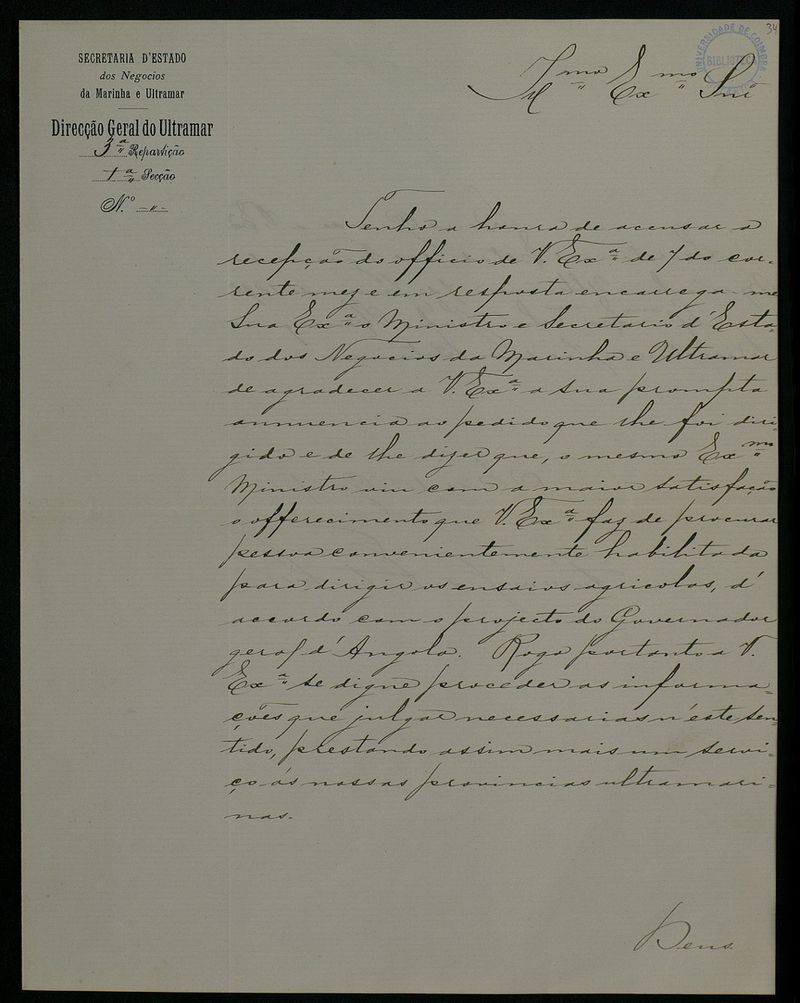 34
UNIVERSIDADE DE COIMBRA
BIBLIOTECA
SECRETARIA D'ESTADO
dos Negocios
da Marinha e Ultramar
Direcção Geral do Ultramar
3ª Repartição
1ª Secção
N.º -"-
Illmo Exmo Snr
Tenho a honra de accusar a
recepção do officio de V. Exª de 7 do cor-
rente mez e em resposta encarrega-me
Sua Exª o Ministro e Secretario d'Esta-
do dos Negocios da Marinha e Ultramar
de agradecer a V. Exª a sua prompta
annuencia ao pedido que lhe foi diri-
gido e de lhe dizer que, o mesmo Exmo
Ministro viu com a maior satisfação
o offerecimento que V. Exª faz de procurar
pessoa convenientemente habilitada
para dirigir os ensaios agricolas, d'
accordo com o projecto do Governador
geral d'Angola. Rogo portanto a V.
Exª se digne proceder as informa-
ções que julgar necessarias n'este sen-
tido, prestando assim mais um servi-
ço ás nossas provincias ultramari-
nas.
Deus